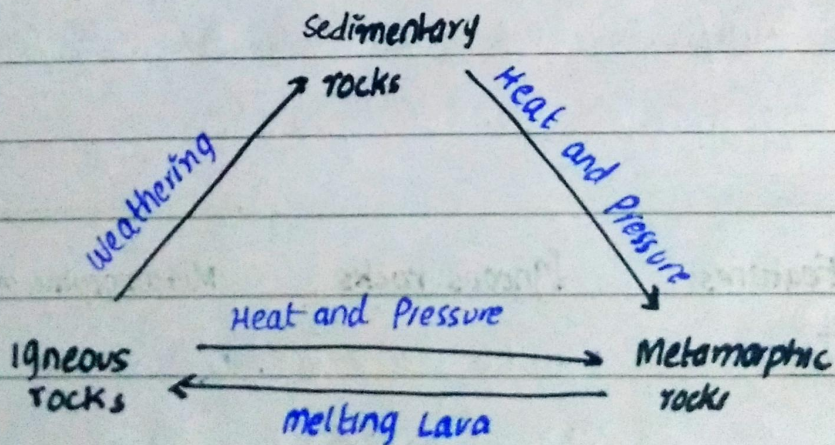 Sedimentary
rocks
Weathering
Heat and Pressure
Heat and Pressure
Igneous
rocks
Metamorphic
rocks
Melting Lava